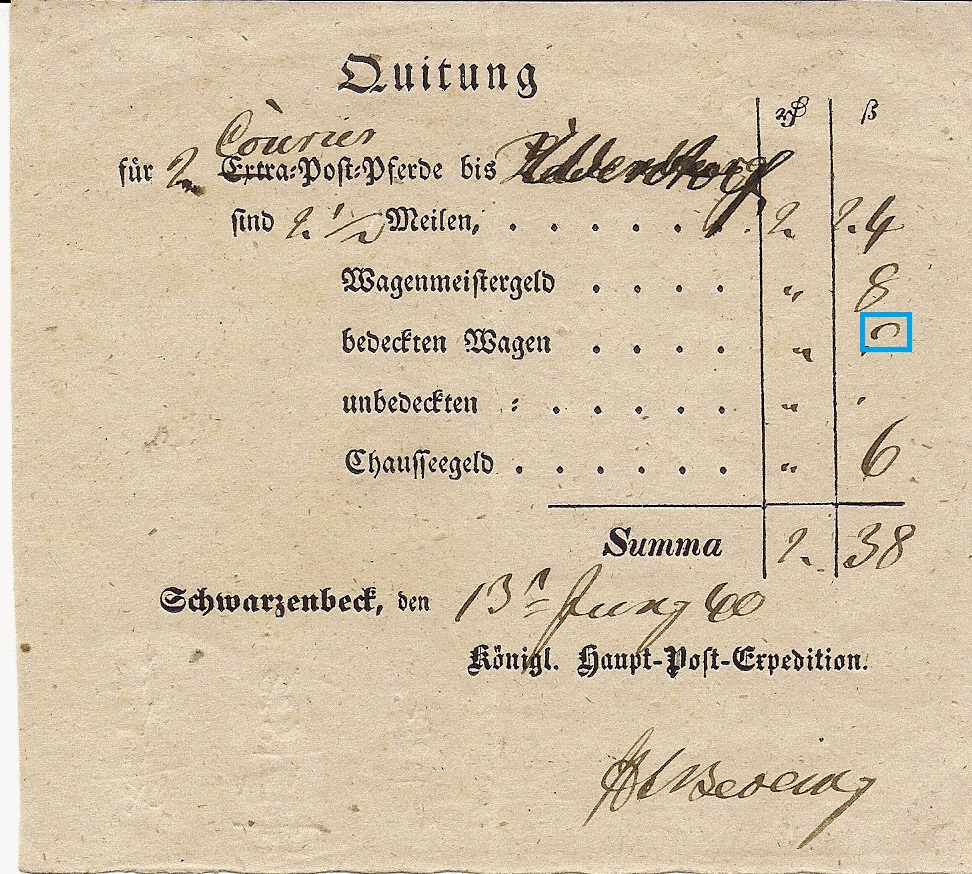 Quitung
rβ ß
Courier
für 2 Extra-Post-Pferde bis
sind 2 1/2 Meilen, . . . . . . 2. 24
Wagenmeistergeld . . . . „ 8
bedeckten Wagen . . . . „
unbedeckten : . . . . . . „
Chausseegeld . . . . . . „ 6
Summa 2. 38
Schwarzenbeck, den 13n Juny 60
Königl. Haupt-Post-Expedition.